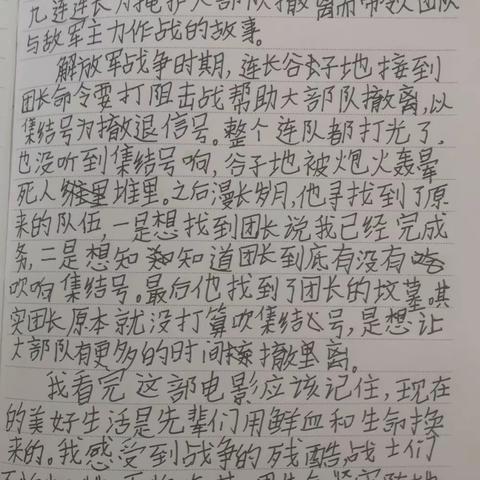 九连连长为掩护大部队撤离而带领团队
与敌军主力作战的故事。
解放军战争时期,连长谷子地接到
团长命令要打阻击战帮助大部队撤离,以
集结号为撤退信号。整个连队都打光了,
也没听到集结号响,谷子地被炮火轰晕
死人堆里。之后漫长岁月,他寻找到了原
来的队伍,一是想找到团长说我已经完成
务,二是想知道团长到底有没有
吹响集结号。最后他找到了团长的坟墓。其
实团长原本就没打算吹集结号,是想让
大部队有更多的时间撤离。
我看完这部电影应该记住,现在
的美好生活是先辈们用鲜血和生命换
来的。我感受到战争的残酷,战士们